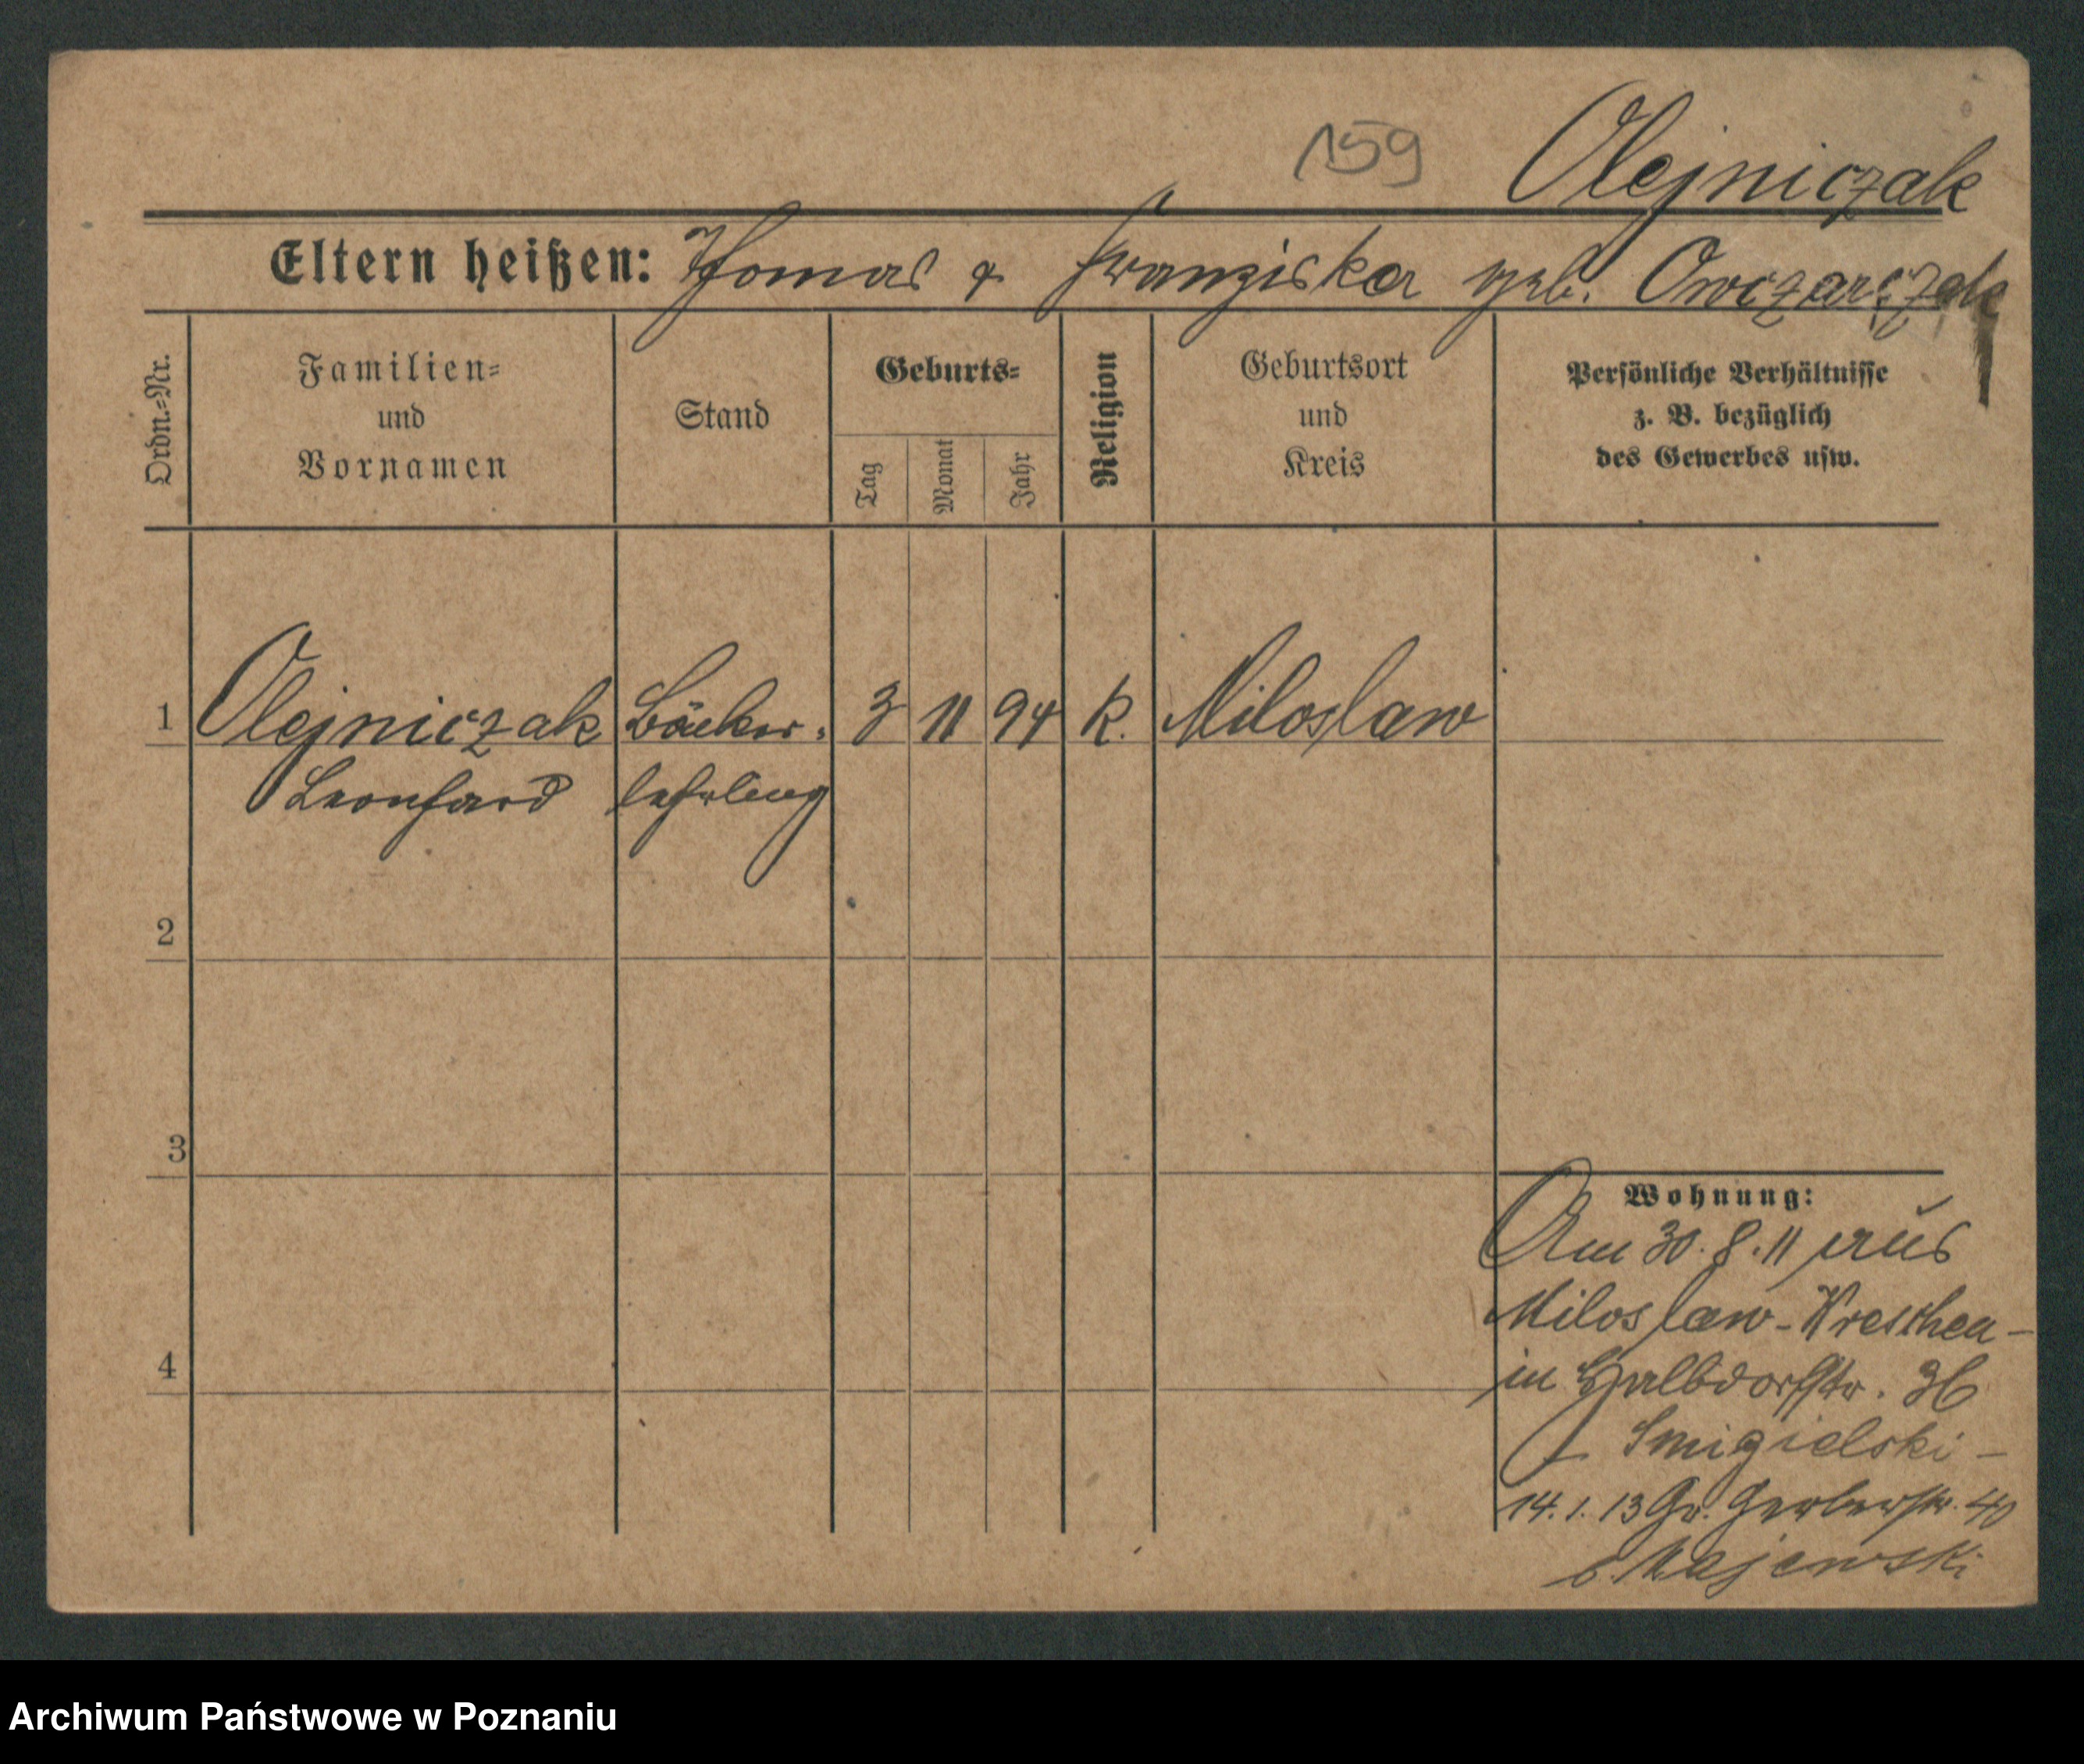 159
Olejniczak
Eltern heißen: Thomas & Franziska geb. Owczarczak
Ordn.-Nr.
Familien-
und
Vornamen
Stand
Geburts-
Tag
Monat
Jahr
Religion
Geburtsort
und
Kreis
Persönliche Verhältnisse
z. B. bezüglich
des Gewerbes usw.
1 Olejniczak Bäcker- 3 11 94 k. Miloslaw
Leonhard lehrling
2
3
4
Wohnung:
Am 30. 8. 11 aus
Miloslaw - Wreschen -
in Halbdorfstr. 36
Smigielski -
14. 1. 13 Gr. Gerberstr. 40
b. Majewski
Archiwum Państwowe w Poznaniu